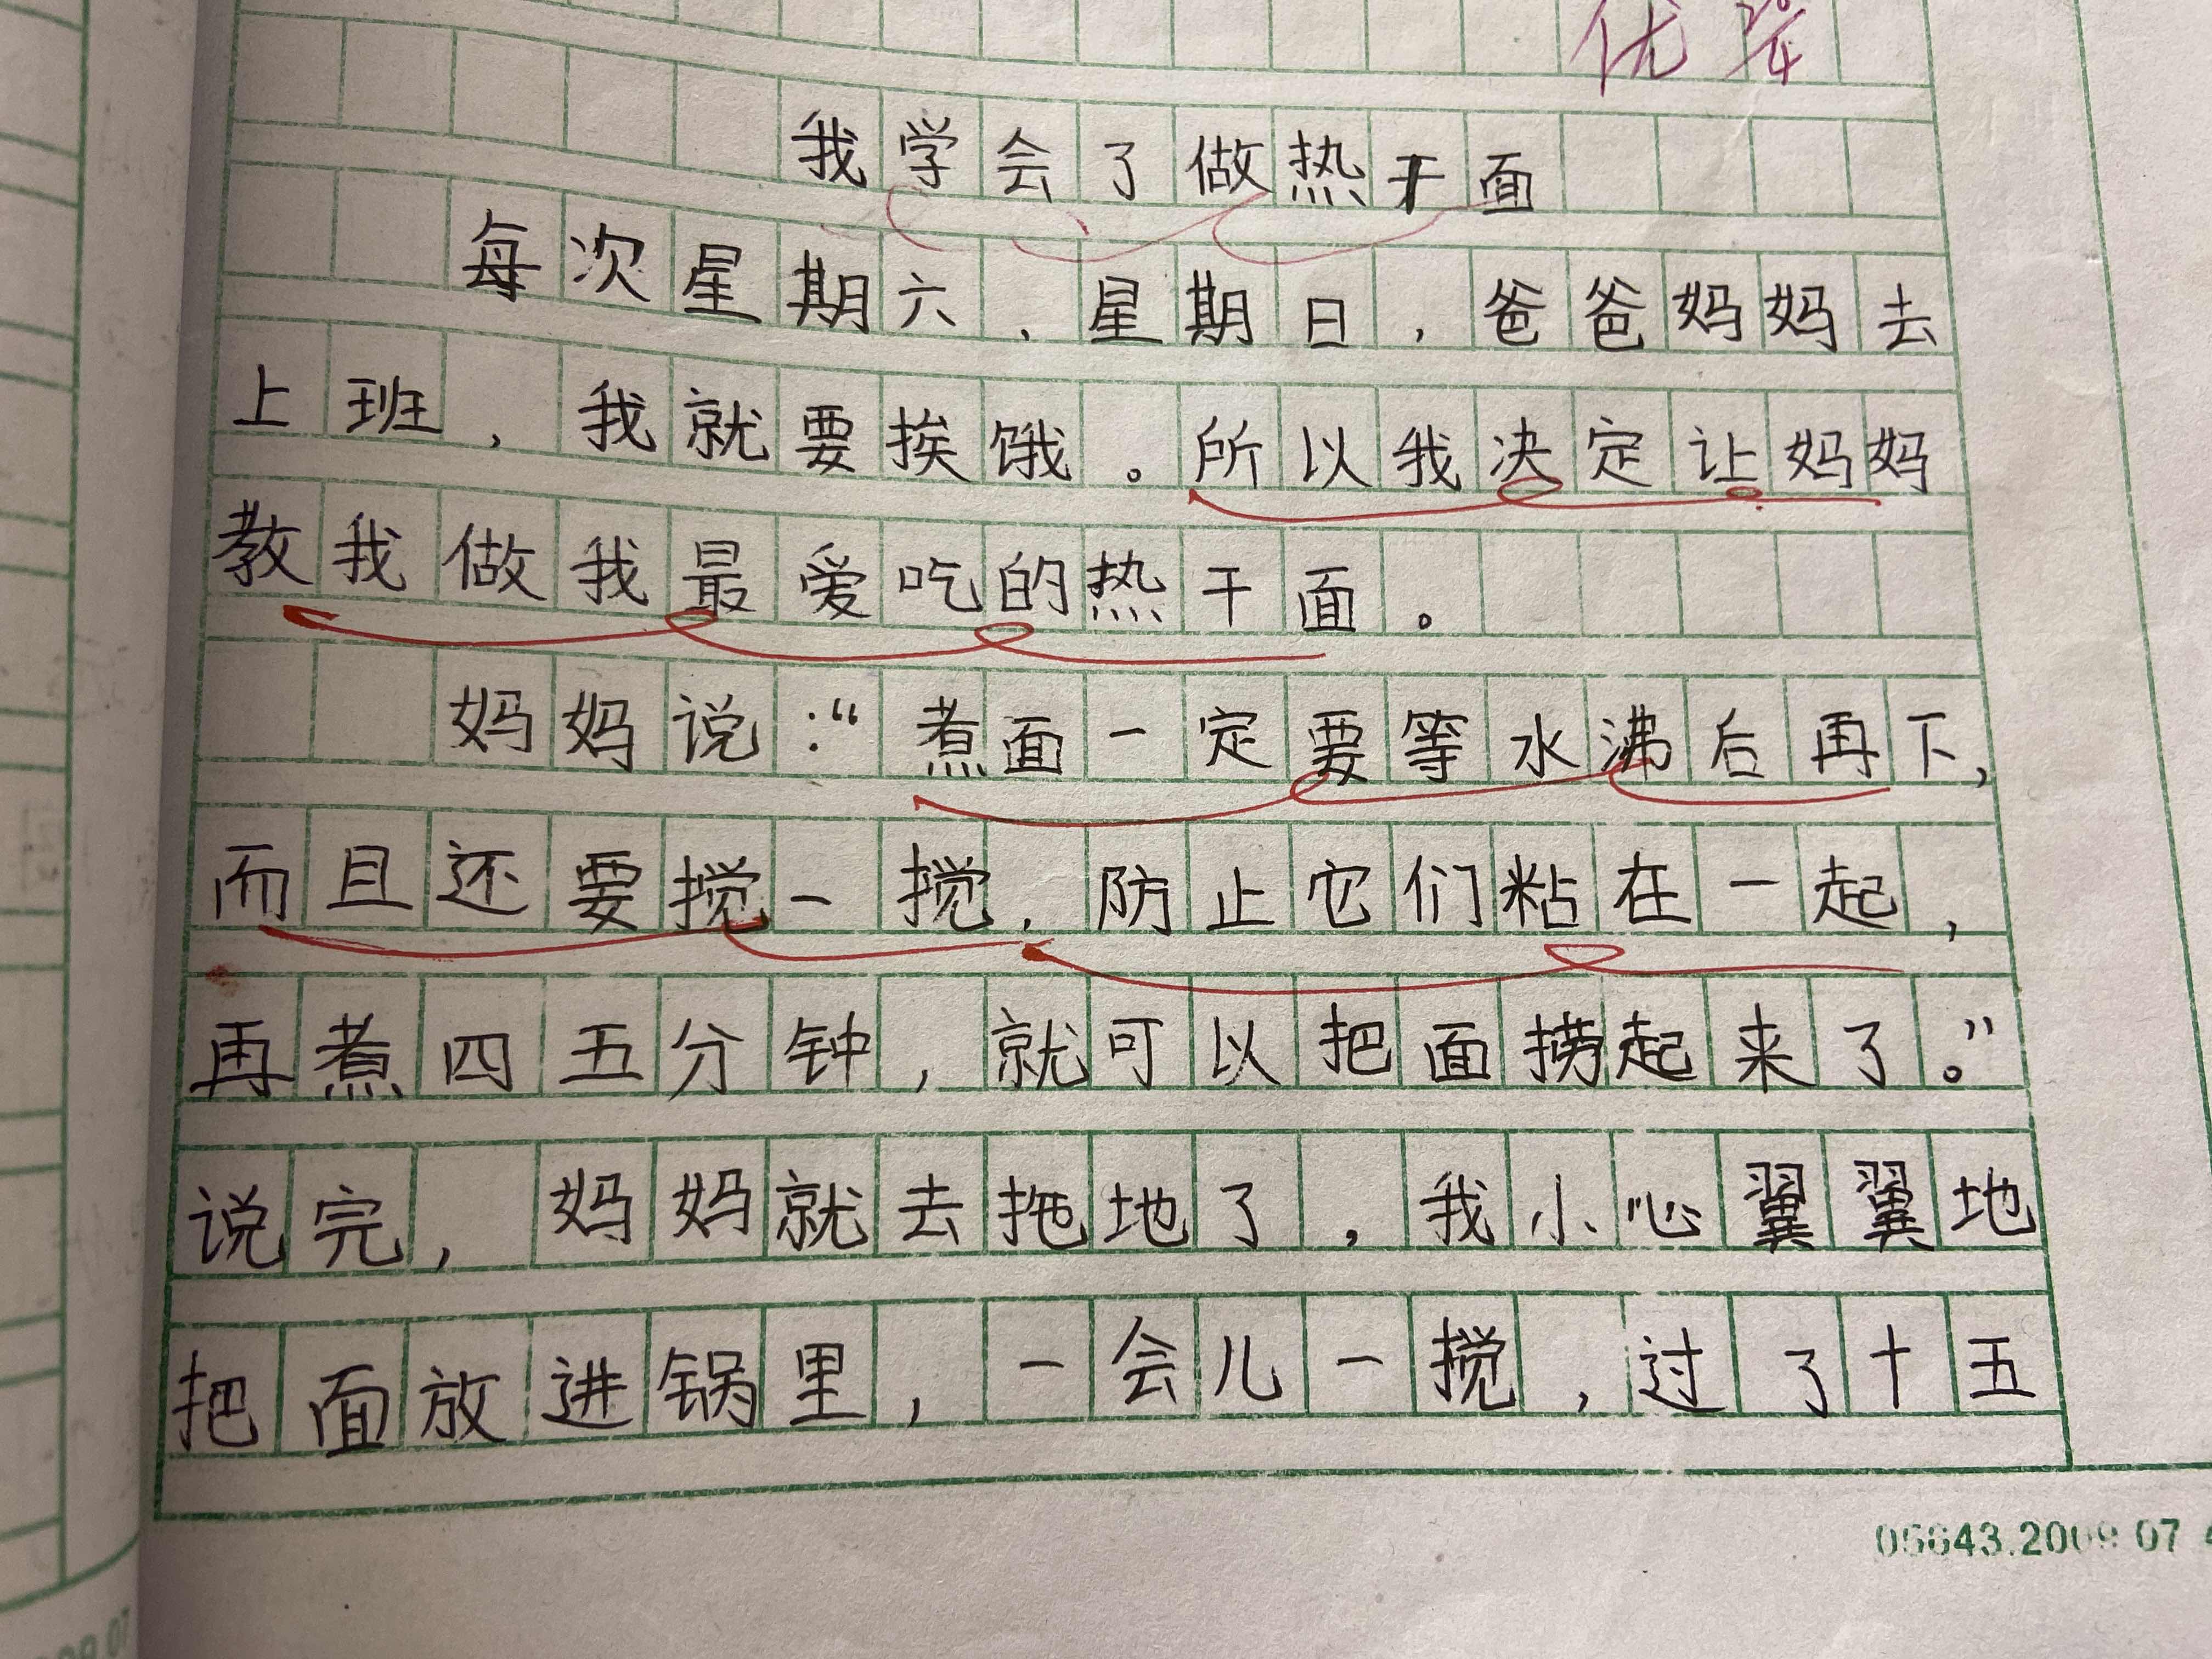 优
我学会了做热干面
每次星期六、星期日，爸爸妈妈去
上班，我就要挨饿。所以我决定让妈妈
教我做我最爱吃的热干面。
妈妈说：“煮面一定要等水沸后再下，
而且还要搅一搅，防止它们粘在一起，
再煮四五分钟，就可以把面捞起来了。”
说完，妈妈就去拖地了，我小心翼翼地
把面放进锅里，一会儿一搅，过了十五
05643.2009 07